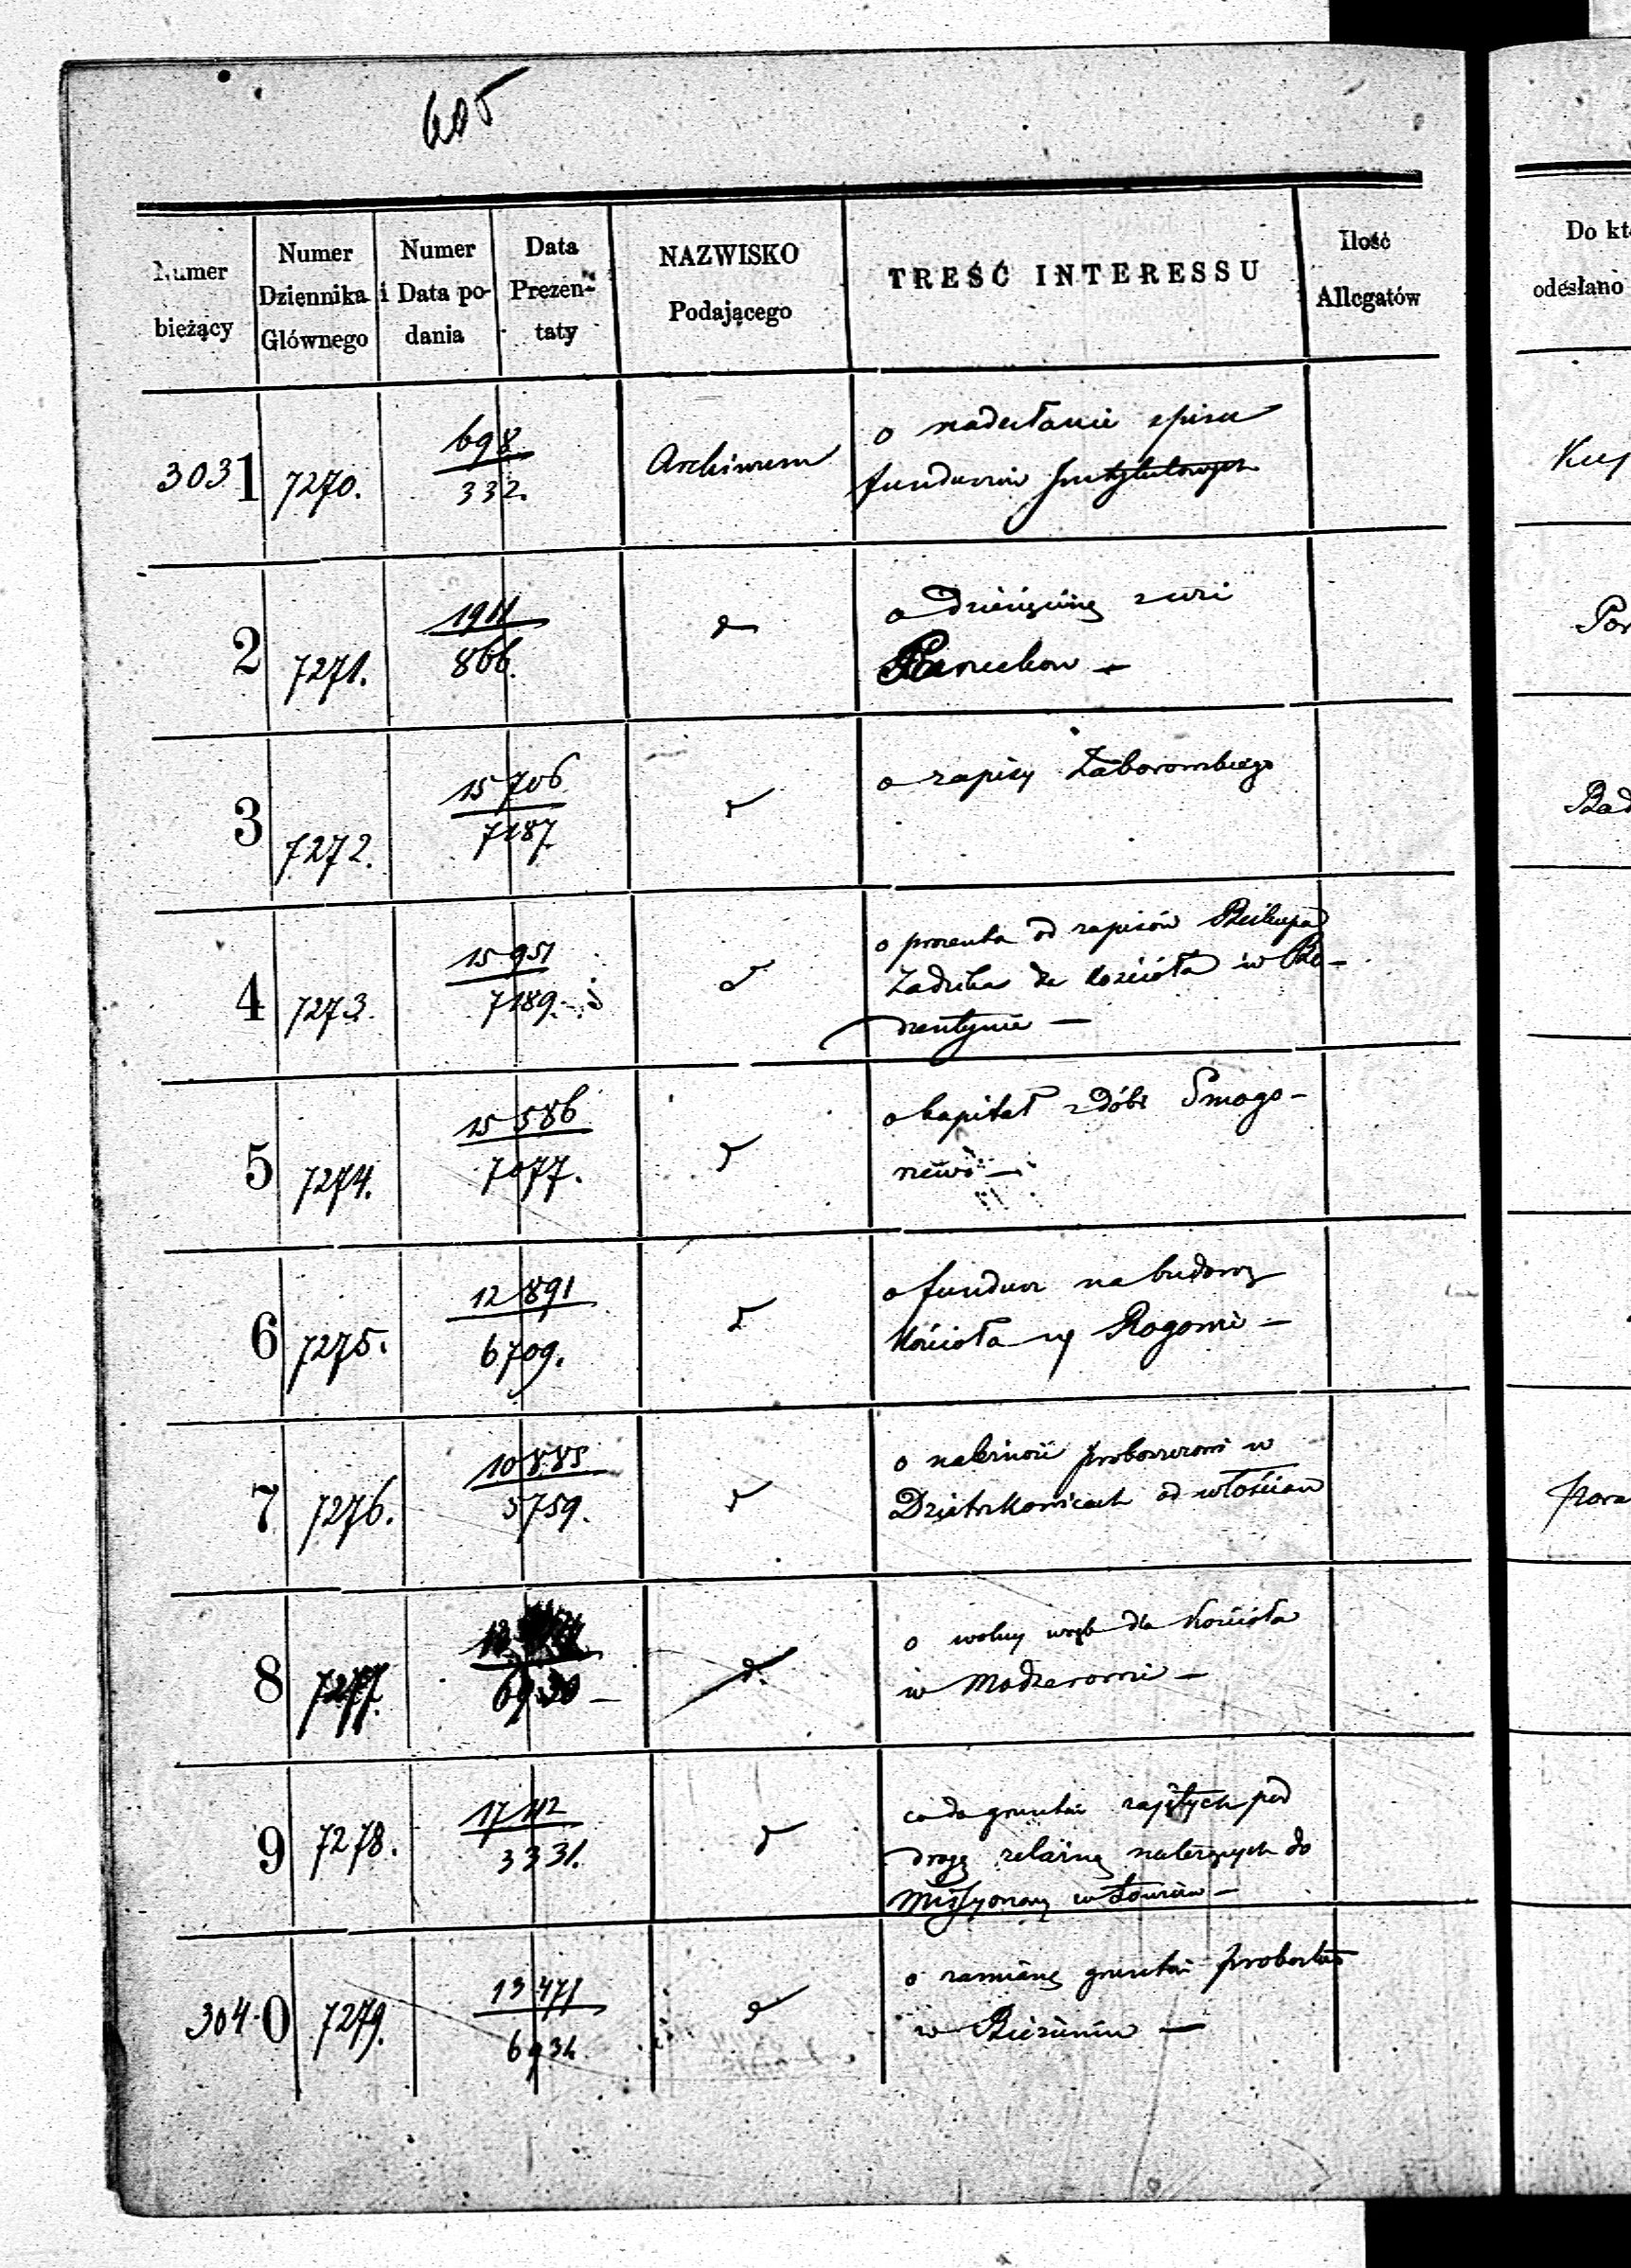 605
Numer bieżący
Numer Dziennika Głównego
Numer i Data podania
Data Prezentaty
NAZWISKO Podającego
TREŚĆ INTERESSU
Ilość Allegatów
Do kt
odesłano
3031 7270. 698/332. Archiwum
o nadesłanie spisu
funduszów Instytutowych
2 7271. 1911/866. d
o dziesięcinę z wsi
3 7272. 15706/7187 d
o zapisy Zaborowskiego
4 7273. 15951/7189. d
o procenta od zapisów Biskupa
Zadzika dla kościoła w Bo-
dzentynie —
5 7274. 15586/7077. d
o kapitał z dóbr Smogo-
6 7275. 12891/6709. d
o fundusz na budowę
kościoła w Rogowie —
7 7276. 10885/5759. d
o należność proboszczowi w
Dzietrzkowicach od włościan
8 7277. d
o wolny wrąb dla kościoła
w
9 7278. 17112/3331. d
co do gruntów zajętych pod
drogę żelazną należących do
Missyonarzy w Łowiczu —
3040 7279. 13471/6934. d
o zamianę gruntów probostwa
w Bieżuniu —